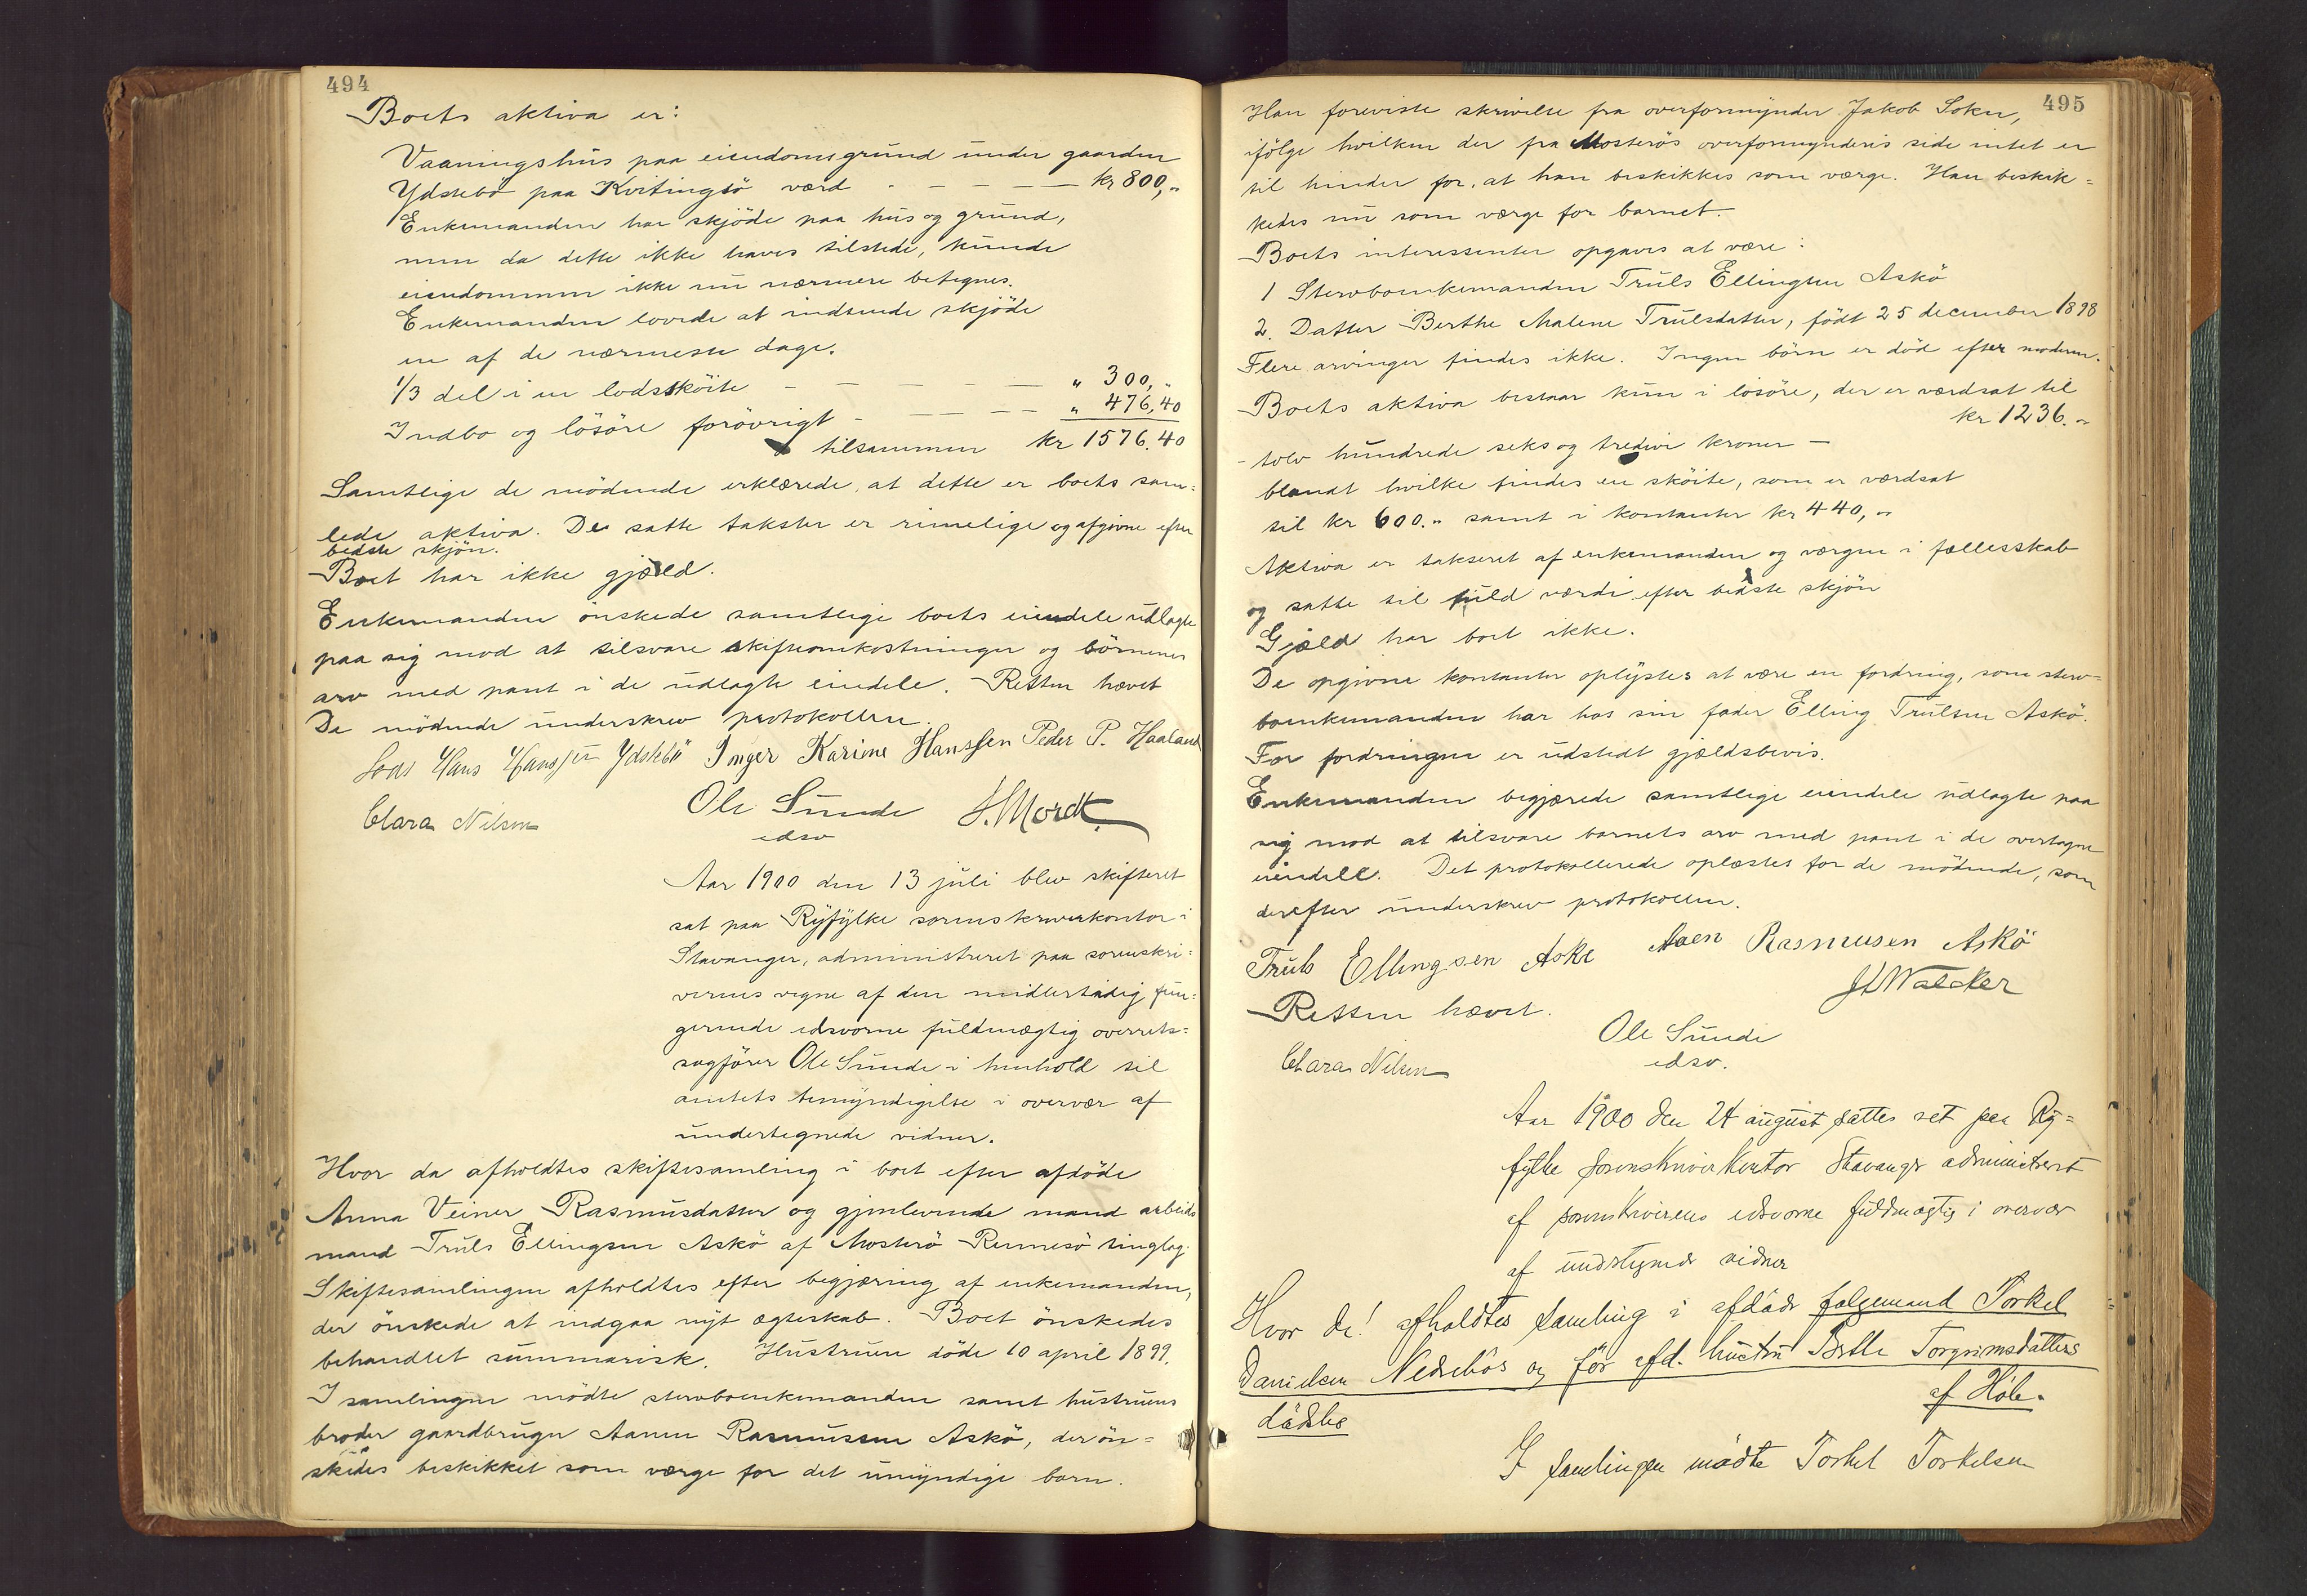 494
Boets aktiva er:
Vaaningshus paa eiendomsgrund under gaarden
Ydstebö paa Kvitingsö værd - - - - kr 800,"
Enkemanden har skjöde paa hus og grund,
men da dette ikke haves tilstede, kunde
eiendommen ikke nu nærmere betegnes.
Enkemanden lovede at indsende skjöde
en af de nærmeste dage.
1/3 del i en lodssköite - - - - - " 300,"
Indbo og lösöre forövrigt - - - - " 476,40
tilsammen kr 1576.40
Samtlige de mödende erklærede, at dette er boets sam=
lede aktiva. De satte takster er rimelige og afgivne efter
bedste skjön.
Boet har ikke gjæld.
Enkemanden önskede samtlige boets eiendele udlagte
paa sig mod at tilsvare skifteomkostninger og börnenes
arv med pant i de udlagte eiendele. Retten hævet
De mödende underskrev protokollen.
Lods Hans Hanssen Ydstebö Inger Karine Hanssen Peder P. Haaland
Clara Nilsen Ole Sunde
edsv
Aar 1900 den 13 juli blev skifteret
sat paa Ryfylke sorenskriverkontor i
Stavanger, administreret paa sorenskri=
verens vegne af den midlertidig fun=
gerende edsvorne fuldmægtig overrets=
sagförer Ole Sunde i henhold til
amtets bemyndigelse i overvær af
undertegnede vidner.
Hvor da afholdtes skiftesamling i boet efter afdöde
Anna Veiner Rasmusdatter og gjenlevende mand arbeids
mand Truls Ellingsen Askö af Mosterö Rennesö tinglag.
Skiftesamlingen afholdtes efter begjæring af enkemanden,
der önskede at indgaa nyt ægteskab. Boet önskedes
behandlet summarisk. Hustruen döde 10 april 1899.
I samlingen mödte stervboenkemanden samt hustruens
broder gaardbruger Aanen Rasmussen Askö, der ön=
skedes beskikket som værge for det umyndige barn.
495
Han foreviste skrivelse fra overformynder Jakob Soken,
ifölge hvilken der fra Mosterös overformynderis side intet er
til hinder for, at han beskikkes som værge. Han beskik=
kedes nu som værge for barnet.
Boets interessenter opgaves at være:
1 Stervboenkemanden Truls Ellingsen Askö
2. Datter Berthe Malene Trulsdatter, födt 25 december 1898
Flere arvinger findes ikke. Ingen börn er död efter moderen.
Boets aktiva bestaar kun i lösöre, der er værdsat til
kr 1236."
- tolv hundrede seks og tredive kroner -
blandt hvilke findes en sköite, som er værdsat
til kr 600." samt i kontanter kr 440,"
Aktiva er takseret af enkemanden og værgen i fællesskab
og satte til fuld værdi efter bedste skjön
Gjæld har boet ikke.
De opgivne kontanter oplystes at være en fordring, som sterv=
boenkemanden har hos sin fader Elling Trulsen Askö.
For fordringen er udstedt gjældsbevis.
Enkemanden begjærede samtlige eiendele udlagte paa
sig mod at tilsvare barnets arv med pant i de overtagne
eiendele. Det protokollerede oplæstes for de mödende, som
derefter underskrev protokollen.
Truls Ellingsen Aske Aaen Rasmusen Askö
Retten hævet.
Ole Sunde
Clara Nilsen edsv.
Aar 1900 den 24 august sattes ret paa Ry=
fylke sorenskriverkontor Stavanger administrert
af sorenskriverens edsvorne fuldmægtig i overvær
af undertegnede vidner
Hvor da! afholdtes samling i afdöde følgemand Torkel
Danielsen Nedrebös og för afd. hustru Berthe Torgrimsdatters
af Höle.
dödsbo
I samlingen mödte Torkel Torkelsen